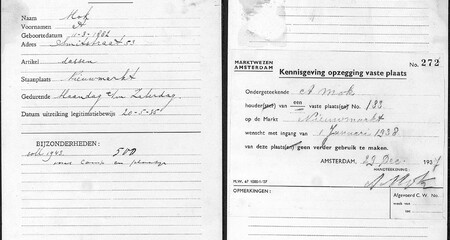 Naam Mok
Voornamen A
Geboortedatum 11-3-1902
Adres Smitstraat 53
Artikel dassen
Staanplaats Nieuwmarkt
Gedurende Maandag t/m Zaterdag
Datum uitreiking legitimatiebewijs 20-5-35
BIJZONDERHEDEN:
1942 500
en
MARKTWEZEN
AMSTERDAM
No. 272
Kennisgeving opzegging vaste plaats
Ondergeteekende A Mok
houder(ster) van een vaste plaats(en) No. 133
op de Markt Nieuwmarkt
wenscht met ingang van 1 Januari 1938
van deze plaats(en) geen verder gebruik te maken.
AMSTERDAM, 23 Dec. 1937
HANDTEEKENING:
A Mok
M.W. 67
OPMERKINGEN:
Afgevoerd C. W. No.
Mark